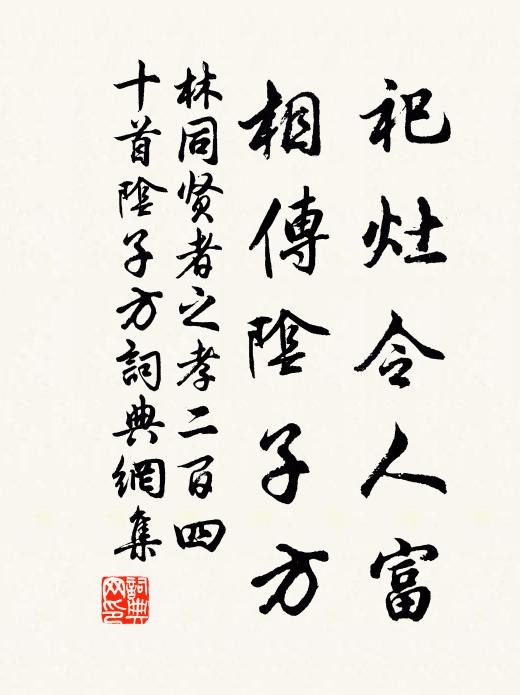 祀灶令人富
相傳陰子方
林同贤者之孝二百四
十首陰子方詞典網集
詞典
网印